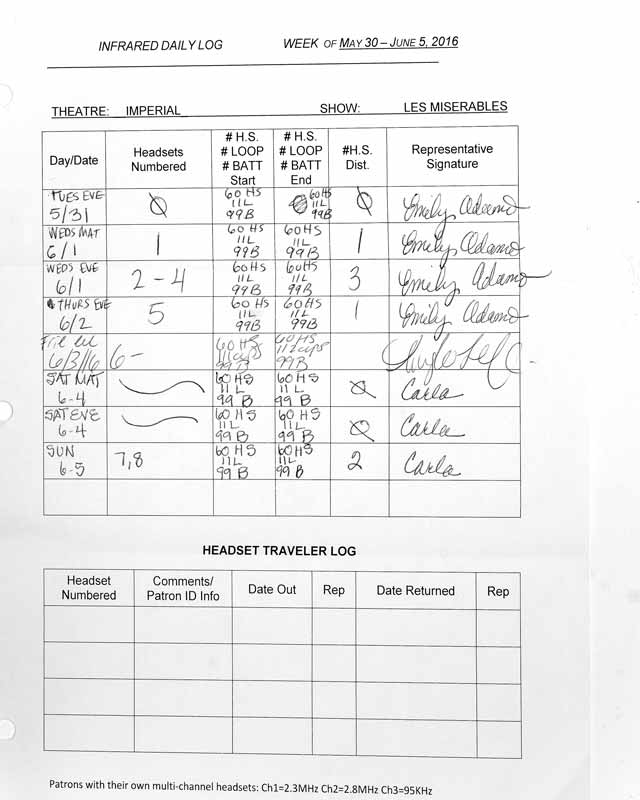 INFRARED DAILY LOG WEEK OF MAY 30 – JUNE 5, 2016
THEATRE: IMPERIAL SHOW: LES MISERABLES
Day/Date Headsets Numbered # H.S. # LOOP # BATT Start # H.S. # LOOP # BATT End #H.S. Dist. Representative Signature
TUES EVE 5/31 Ø 60 HS 11L 99B 60 HS 11L 99B Ø Emily Adamo
WEDS MAT 6/1 1 60 HS 11L 99B 60HS 11L 99B 1 Emily Adamo
WEDS EVE 6/1 2-4 60HS 11L 99B 60HS 11L 99B 3 Emily Adamo
THURS EVE 6/2 5 60HS 11L 99B 60HS 11L 99B 1 Emily Adamo
6/3/16 6- 60 HS 99B 60 HS 99B
SAT MAT 6-4 60 HS 11 L 99 B 60 HS 11 L 99 B Ø Carla
SAT EVE 6-4 60 HS 11L 99 B 60 HS 11L 99 B Ø Carla
SUN 6-5 7,8 60 HS 11 L 99 B 60HS 11 L 99 B 2 Carla
HEADSET TRAVELER LOG
Headset Numbered Comments/ Patron ID Info Date Out Rep Date Returned Rep
Patrons with their own multi-channel headsets: Ch1=2.3MHz Ch2=2.8MHz Ch3=95KHz